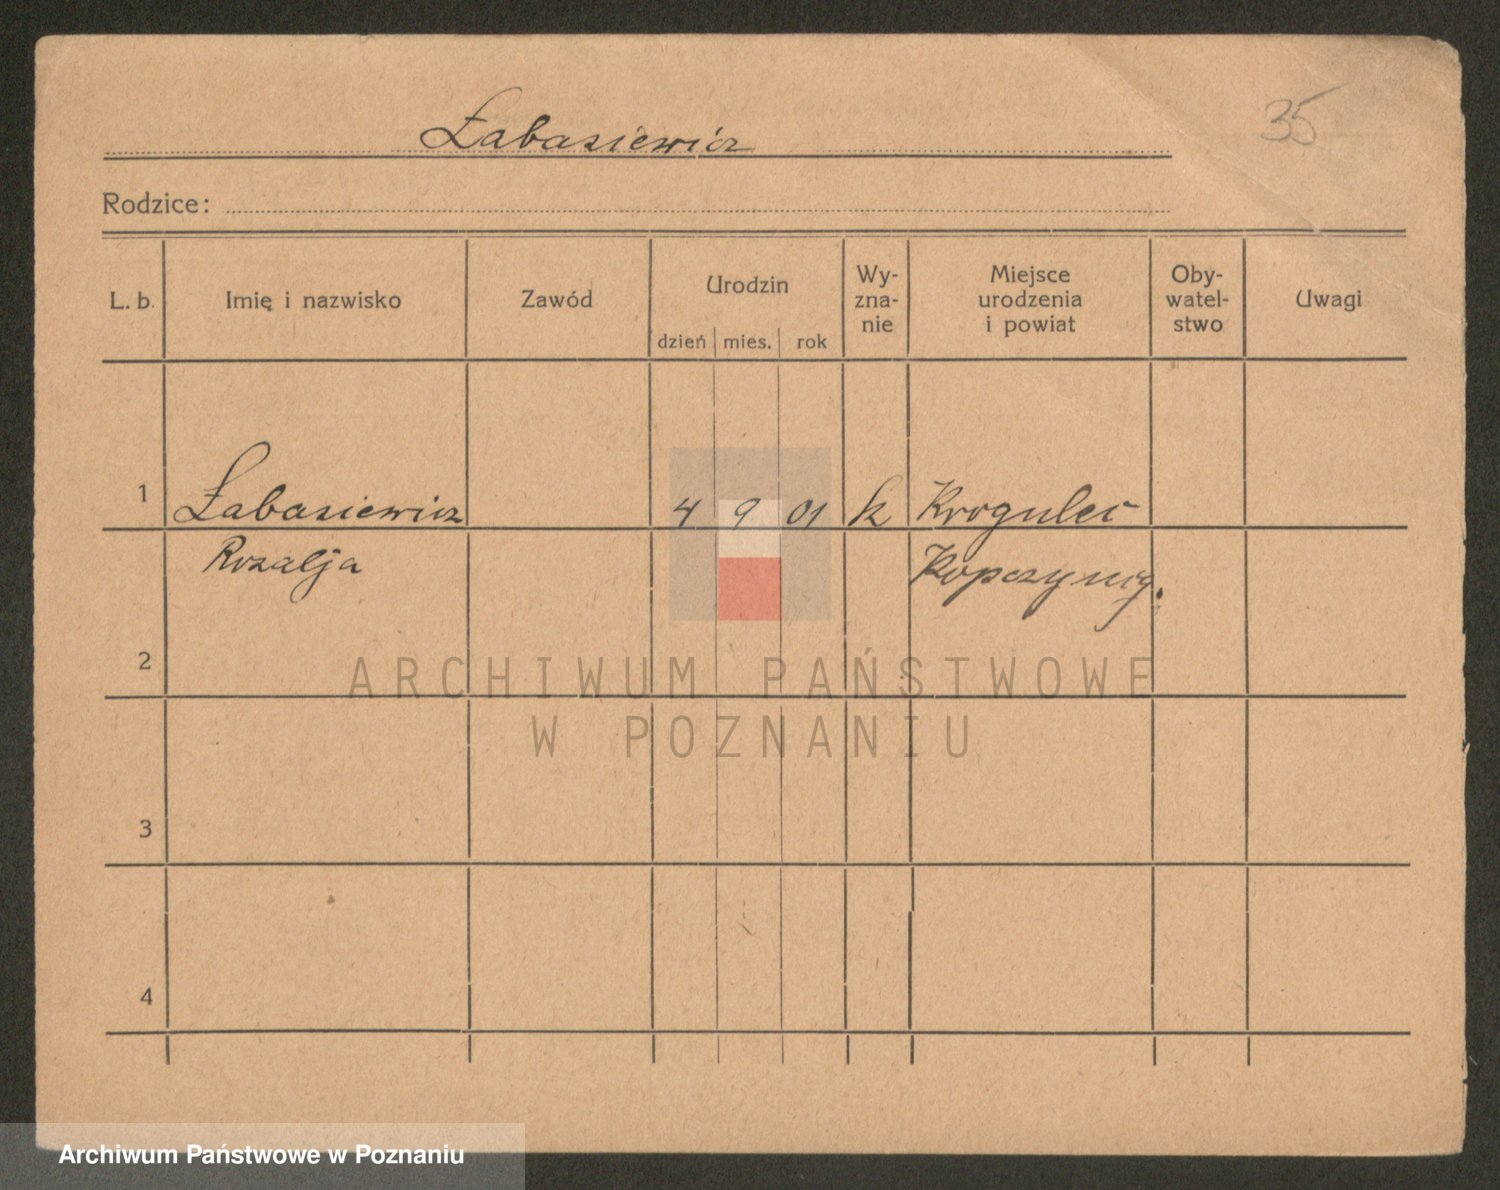 Łabasiewicz
35
Rodzice:
L. b.
Imię i nazwisko
Zawód
Urodzin
dzień mies. rok
Wy-
zna-
nie
Miejsce
urodzenia
i powiat
Oby-
watel-
stwo
Uwagi
1 Łabasiewicz 4 9 01 k Krogulec
Rozalja Kopczynię.
2
3
4
ARCHIWUM PAŃSTWOWE
W POZNANIU
Archiwum Państwowe w Poznaniu